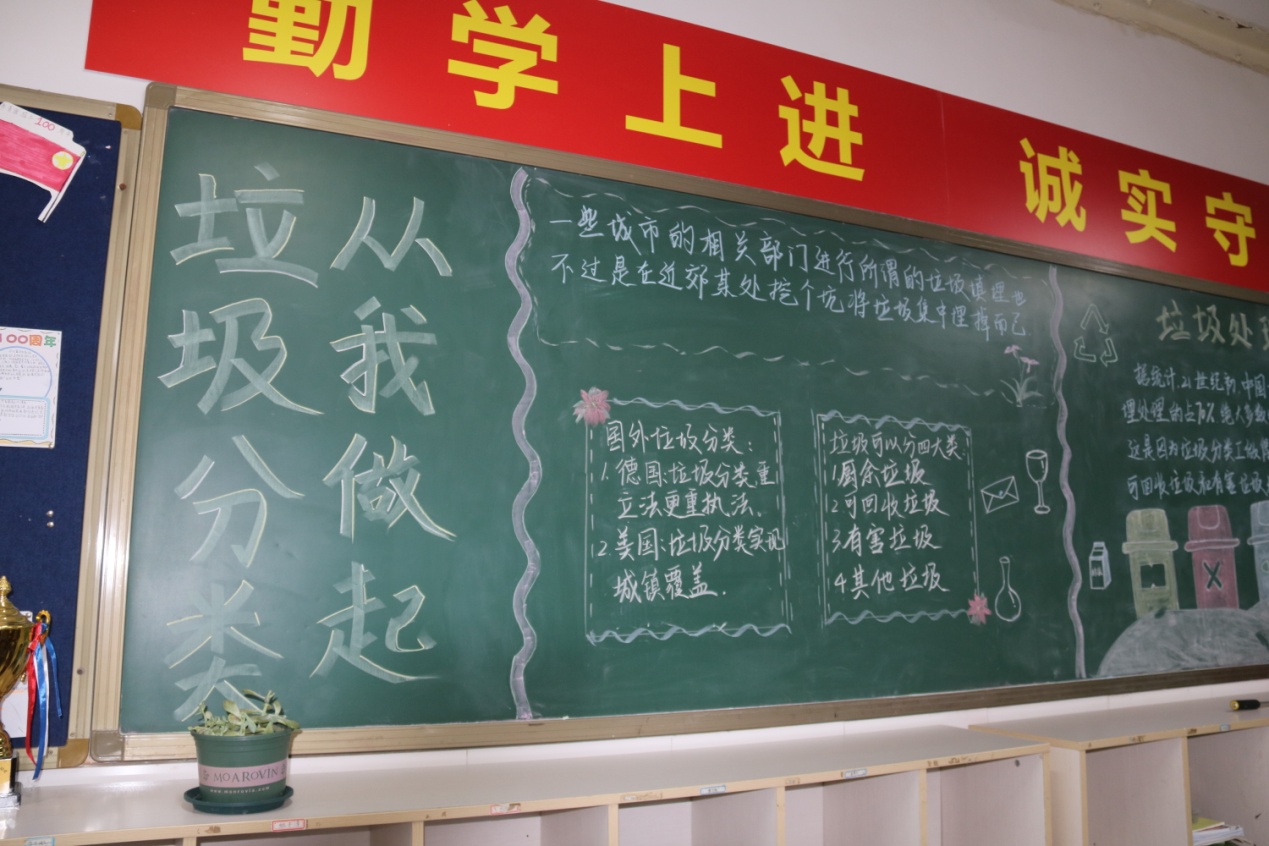 勤学上进 诚实守
100
100周年
垃圾分类
从我做起
一些城市的相关部门进行所谓的垃圾填埋也
不过是在近郊某处挖个坑,将垃圾集中埋掉而已
国外垃圾分类:
1.德国:垃圾分类重
立法更重执法.
2.美国:垃圾分类实现
城镇覆盖.
垃圾可以分四大类:
1厨余垃圾
2可回收垃圾
3有害垃圾
4其他垃圾
垃圾处理
据统计,21世纪初中国
理处理的占70%绝大多数
这是因为垃圾分类工作
可回收垃圾和有害垃圾
& MOAROVIN